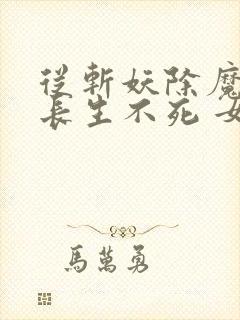 從斬妖除魔
長生不死 女
馬萬勇